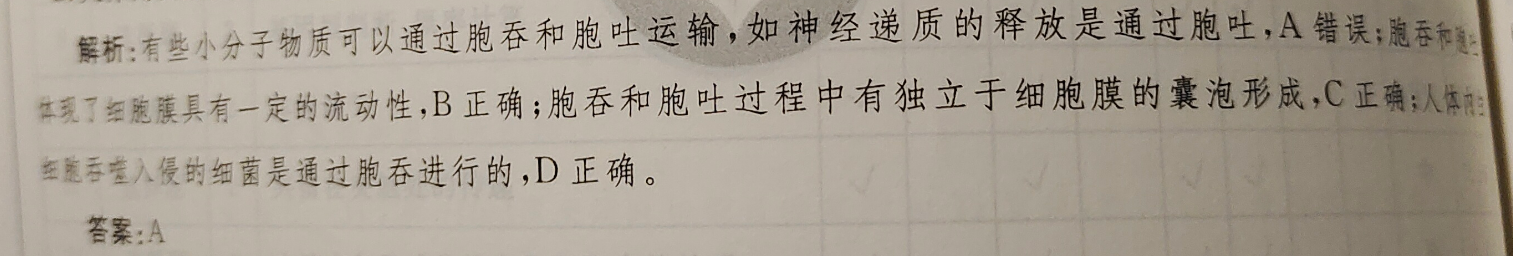 解析:有些小分子物质可以通过胞吞和胞吐运输,如神经递质的释放是通过胞吐,A 错误;胞吞和胞吐
体现了细胞膜具有一定的流动性,B 正确;胞吞和胞吐过程中有独立于细胞膜的囊泡形成,C 正确;人体内
细胞吞噬入侵的细菌是通过胞吞进行的,D 正确。
答案:A